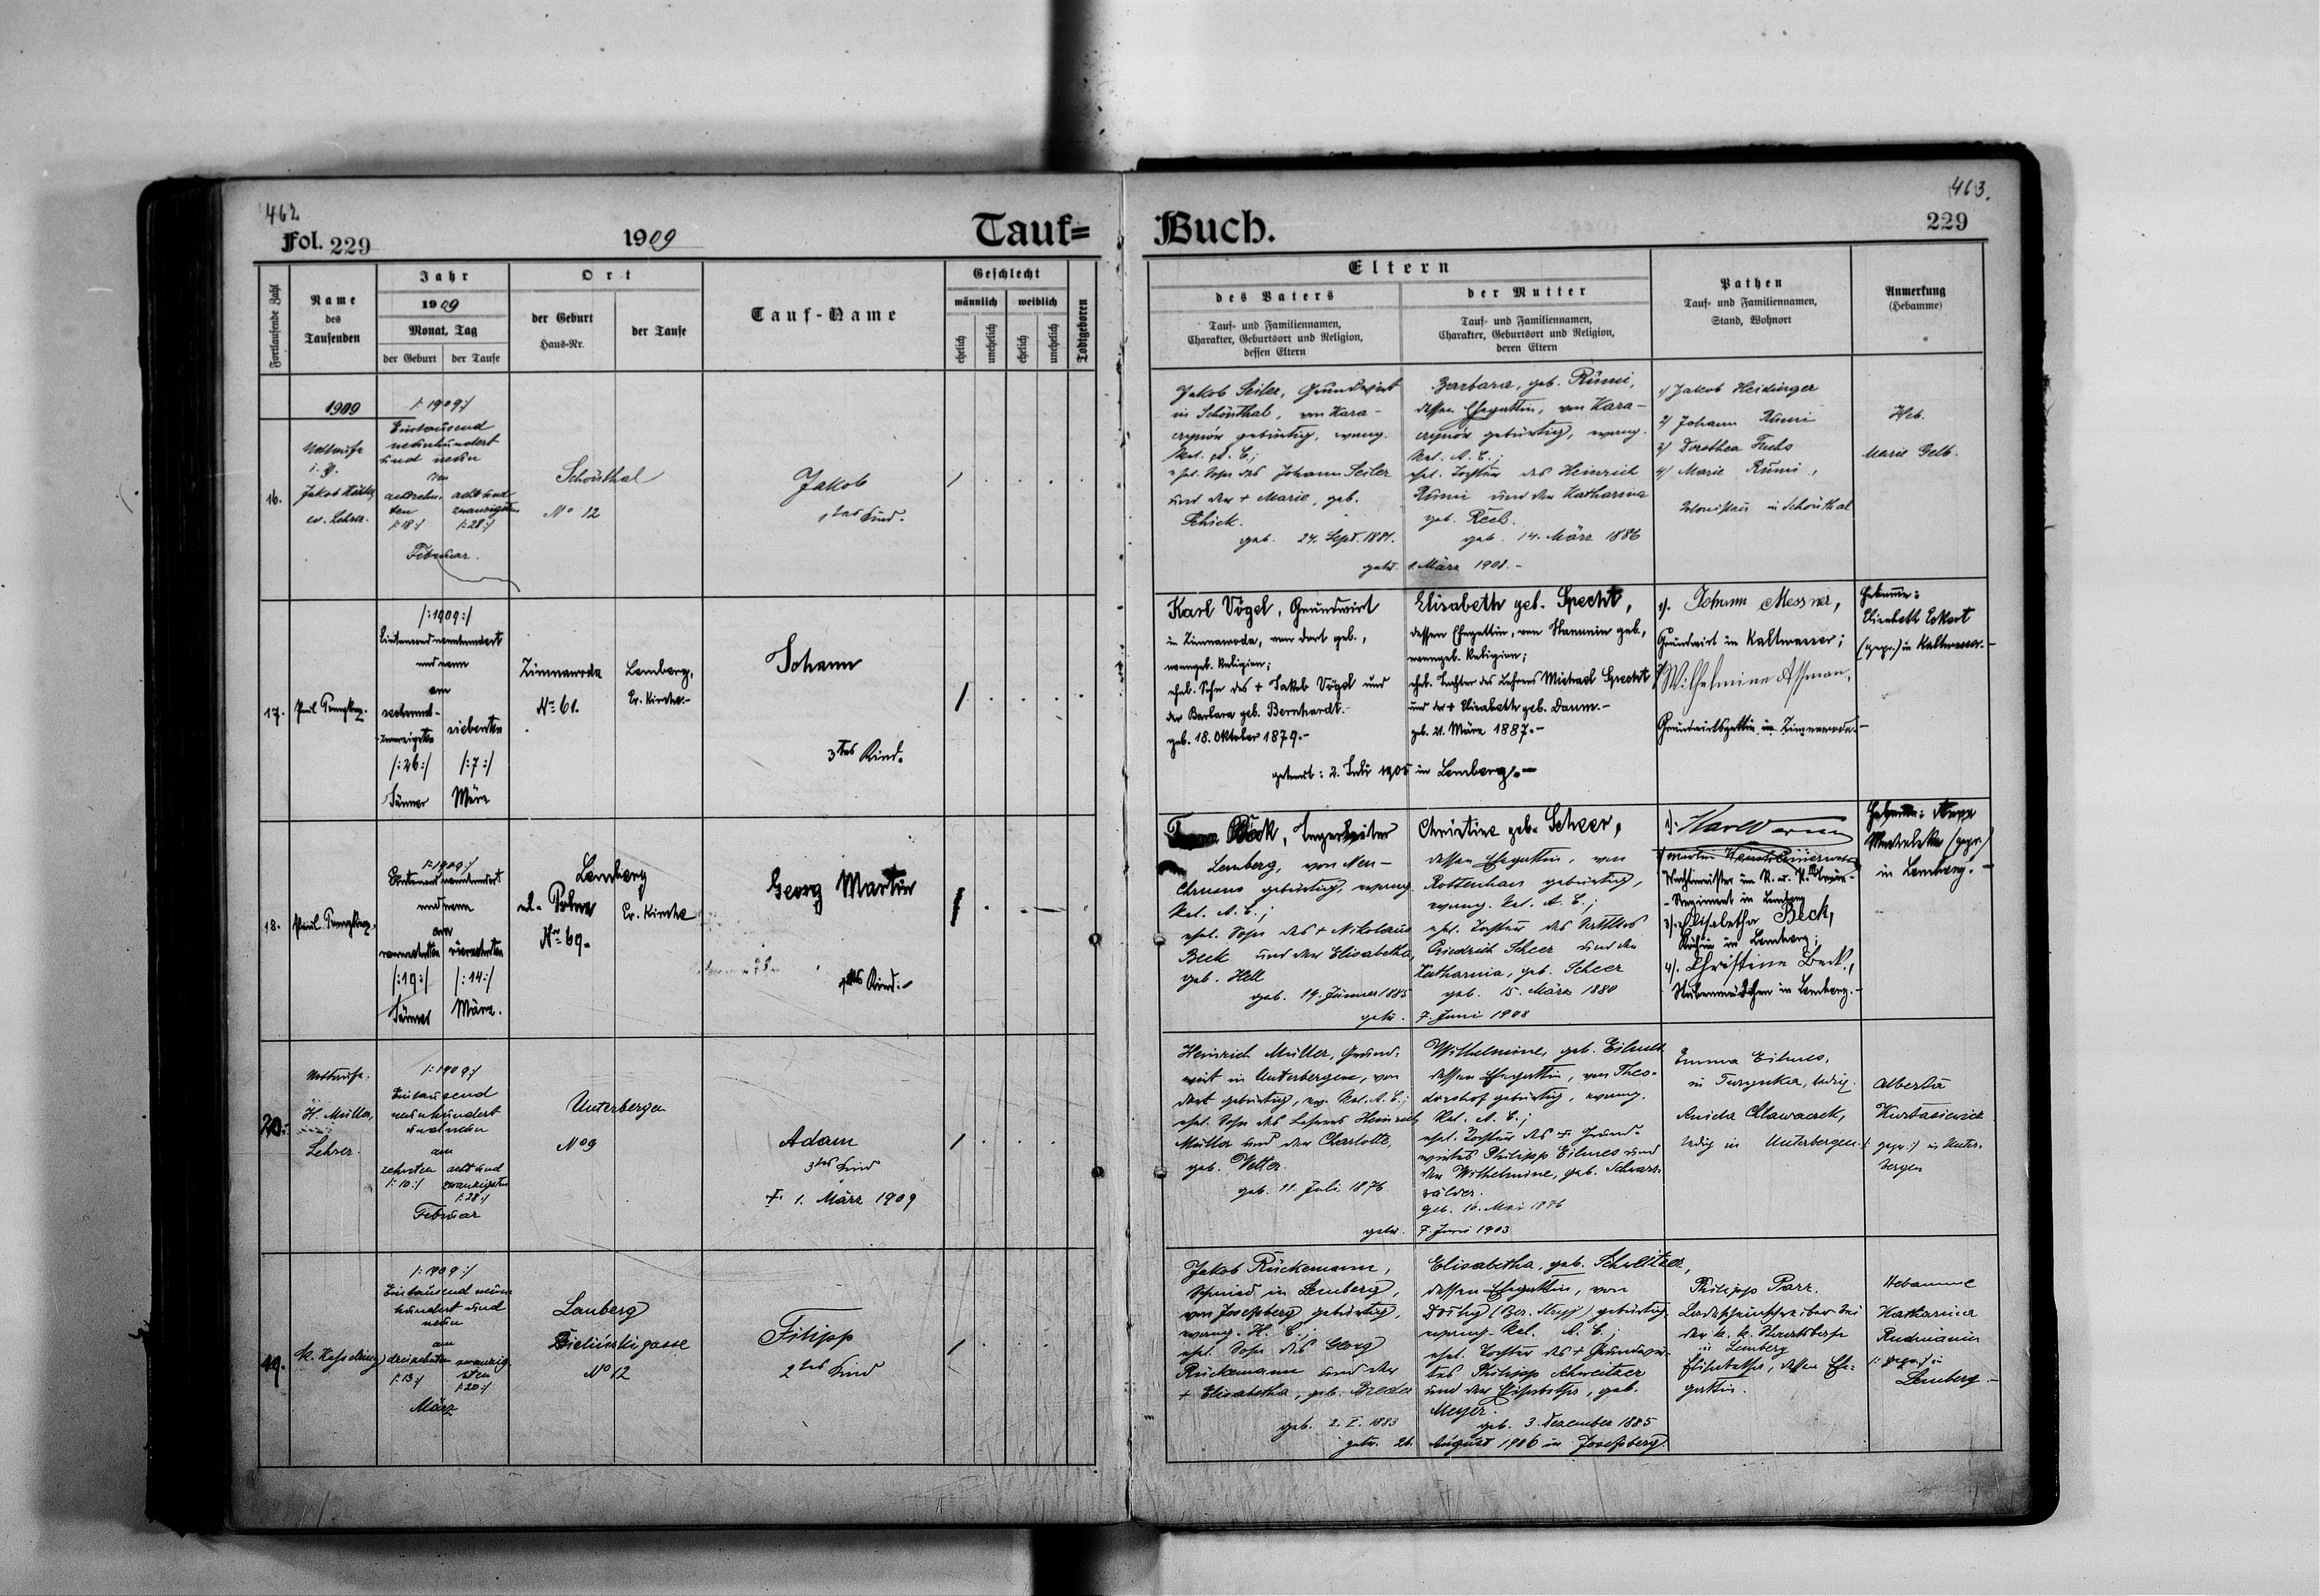 462
Fol. 229
1909
Tauf=
Fortlaufende Zahl
Name
des
Taufenden
Jahr
1909
Monat, Tag
der Geburt
der Taufe
Ort
der Geburt
Haus-Nr.
der Taufe
Tauf-Name
Geschlecht
männlich
weiblich
ehelich
unehelich
ehelich
unehelich
Todtgeboren
1909
16.
Nottaufe
Jakob
ev. Lehrer.
/:1909:/
Eintausend
neunhundert
und neun
am
achtzehn-
ten
/:18:/
acht und
zwanzigsten
/:28:/
Februar.
Schönthal
No 12
Jakob
1tes Kind.
17.
Paul
/:1909:/
Eintausend neunhundert
und neun
am
sechsund-
zwanzigsten
/:26:/
Jänner
siebenten
/:7:/
März
Zimnawoda
No 61.
Lemberg,
Ev. Kirche.-
Johann
3tes Kind.
18.
Paul
/:1909:/
Eintausend neunhundert
und neun
am
neunzehnten
/:19:/
Jänner
vierzehnten
/:14:/
März.
Lemberg
No 69.
Ev. Kirche
Georg Martin
1tes Kind.-
20.
Nottaufe:
H. Müller,
Lehrer.
/:1909:/
Eintausend
neunhundert
und neun
am
zehnten
/:10:/
acht und
zwanzigsten
/:28:/
Februar
Unterbergen
No 9
Adam
3tes Kind
† 1. März 1909
19.
/:1909:/
Eintausend neun-
hundert und
neun
am
dreizehnten
/:13:/
zwanzig-
sten
/:20:/
März
Lemberg
Bielińskigasse
No 12
Filipp
2tes Kind
463.
Buch.
229
Eltern
des Vaters
Tauf- und Familiennamen,
Charakter, Geburtsort und Religion,
dessen Eltern
der Mutter
Tauf- und Familiennamen,
Charakter, Geburtsort und Religion,
deren Eltern
Pathen
Tauf- und Familiennamen,
Stand, Wohnort
Anmerkung
(Hebamme)
Jakob Seiler, Grundwirt
in Schönthal, von Kara-
czynów gebürtig, evang.
Rel. A. C.;
ehel. Sohn des Johann Seiler
und der † Marie, geb.
Schick.
geb. 24. Sept. 1881.
Barbara, geb. Rümi,
dessen Ehegattin, von Kara-
czynów gebürtig, evang.
Rel. A. C.;
ehel. Tochter des Heinrich
Rümi und der Katharina
geb. Reeb.
geb. 14. März 1886
getr. 1. März 1908.-
1) Jakob Heidinger
2) Johann Rümi
3) Dorothea Fuchs
4) Marie Rümi,
Kolonisten in Schönthal
Heb.
Marie Gelb.
Karl Vögel, Grundwirt
in Zimnawoda, von dort geb.,
evangel. Religion;
ehel. Sohn des † Jakob Vögel und
der Barbara geb. Bernhardt.-
geb. 18. Oktober 1879.-
Elisabeth geb. Specht,
dessen Ehegattin, von Hanunin geb.,
evangel. Religion;
ehel. Tochter des Lehrers Michael Specht
und der † Elisabeth geb. Daum.-
geb. 21. März 1887.-
getraut: 2. Juli 1905 in Lemberg.-
1). Johann Messner,
Grundwirt in Kaltwasser;
2) Wilhelmine Assman,
Grundwirtsgattin in Zimnawoda.-
Hebamme:
Elisabeth Eckert
(gepr.) in Kaltwasser.-
Beck,
Lemberg, von Neu-
Chrusno gebürtig, evang.
Rel. A. C.;
ehel. Sohn des † Nikolaus
Beck und der Elisabetha,
geb. Hell
geb. 19. Jänner 1885
Christine geb. Scheer,
dessen Ehegattin, von
Rottenhan gebürtig,
evang. Rel. A. C.;
ehel. Tochter des
Friedrich Scheer und der
Katharina, geb. Scheer
geb. 15. März 1880
getr. 7. Juni 1908
1).
2) Martin
Wachtmeister im K. u. K.
-Regiment in Lemberg
3). Elisabetha Beck,
Köchin in Lemberg;
4). Christine Beck,
Stubenmädchen in Lemberg.-
Hebamme:
(gepr.)
in Lemberg.-
Heinrich Müller, Grund-
wirt in Unterbergen, von
dort gebürtig, ev. Rel. A. C.;
ehel. Sohn des Lehrers Heinrich
Müller und der Charlotte,
geb. Vetter.
geb. 11. Juli 1876
Wilhelmine, geb. Eilmes
dessen Ehegattin, von Theo-
dorshof gebürtig, evang.
Rel. A. C.;
ehel. Tochter des † Grund-
wirtes Philipp Eilmes und
der Wilhelmine, geb. Schwarz-
wälder.
geb. 16. Mai 1886
getr. 7. Juni 1903
Emma Eilmes,
in Turynka, ledig.
ledig in Unterbergen.
Alberta
/: gepr.:/ in Unter-
bergen
Jakob Rückemann,
Schmied in Lemberg,
von Josefsberg gebürtig,
evang. H. C.;
ehel. Sohn des Georg
Rückemann und der
† Elisabetha, geb. Breder
geb. 2. I. 1883
Elisabetha, geb. Schweitzer,
dessen Ehegattin, von
gebürtig
evang. Rel. A. C.;
ehel. Tochter des † Grundwir-
tes Philipp Schweitzer
und der Elisabetha, geb.
Meyer.
geb. 3. Dezember 1885
getr. 26. August 1906 in Josefsberg.
Philipp Parr,
bei
der k. k.
in Lemberg
Elisabetha, dessen Ehe-
gattin.
Hebamme
Katharina
/: gepr.:/ in
Lemberg-